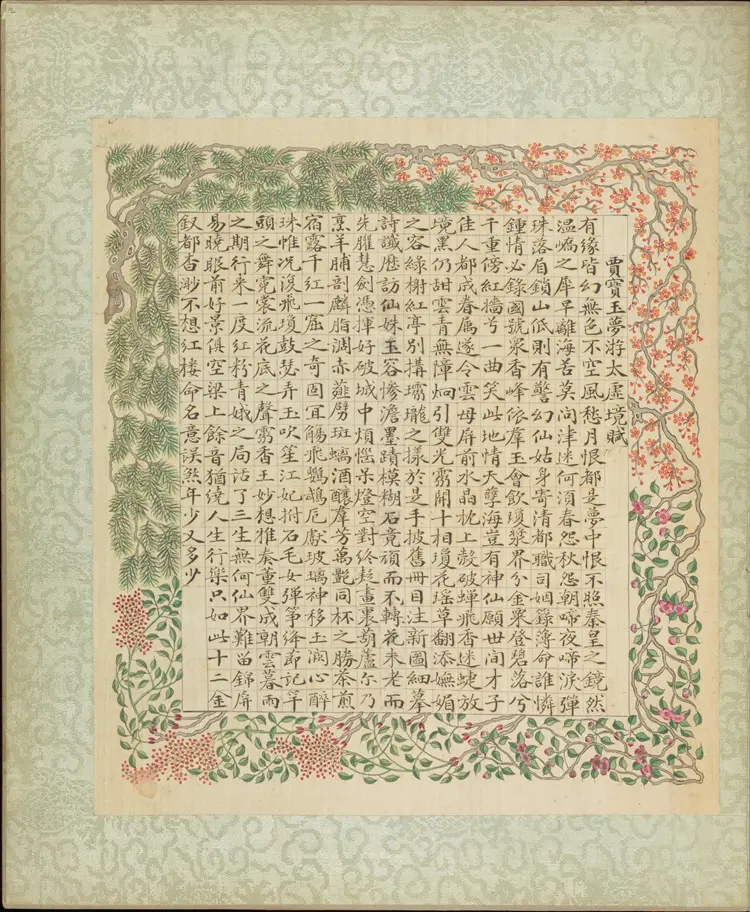 賈寶玉夢游太虛境賦
有緣皆幻無色不空風愁月恨都是夢中恨不照秦皇之鏡然
溫嶠之犀早離海苦莫問津迷何須春怨秋怨朝啼夜啼淚彈
珠落眉鎖山低則有警幻仙姑身寄清都職司姻錄薄命誰憐
鍾情必錄國號眾香峰依羣玉會飲瓊漿界分金粟登碧落兮
千重傍紅牆兮一曲笑此地情天孽海豈有神仙願世間才子
佳人都成眷屬遂令雲母屏前水晶枕上縠破蟬飛香迷蜨放
境黑仍甜雲青無障炯引雙光霧開十相瓊花瑤草翻添嫵媚
之容綠榭紅亭別搆瓏瓏之樣於是手披舊冊目注新圖細摹
詩讖歷訪仙姝玉容慘澹墨蹟模糊石竟頑而不轉花未老而
先臞慧劍憑揮好破城中煩惱呆燈空對終疑畫裏葫蘆尔乃
烹羊脯剖麟脂調赤薤劈斑螭酒釀羣芳萬艷同杯之勝茶煎
宿露千紅一窟之奇固宜觴飛鸚鵡卮獻玻璃神移玉闕心醉
珠帷況復飛瓊鼓瑟弄玉吹笙江妃拊石毛女彈箏絳節記竿
頭之舞霓裳流花底之聲霧香玉妙想推奏董雙成朝雲暮雨
之期行來一度紅粉青娥之局話了三生無何仙界難留錦屏
易曉眼前好景俱空梁上餘音猶繞人生行樂只如此十二金
釵都杳渺不想紅樓命名意誤煞年少又多少